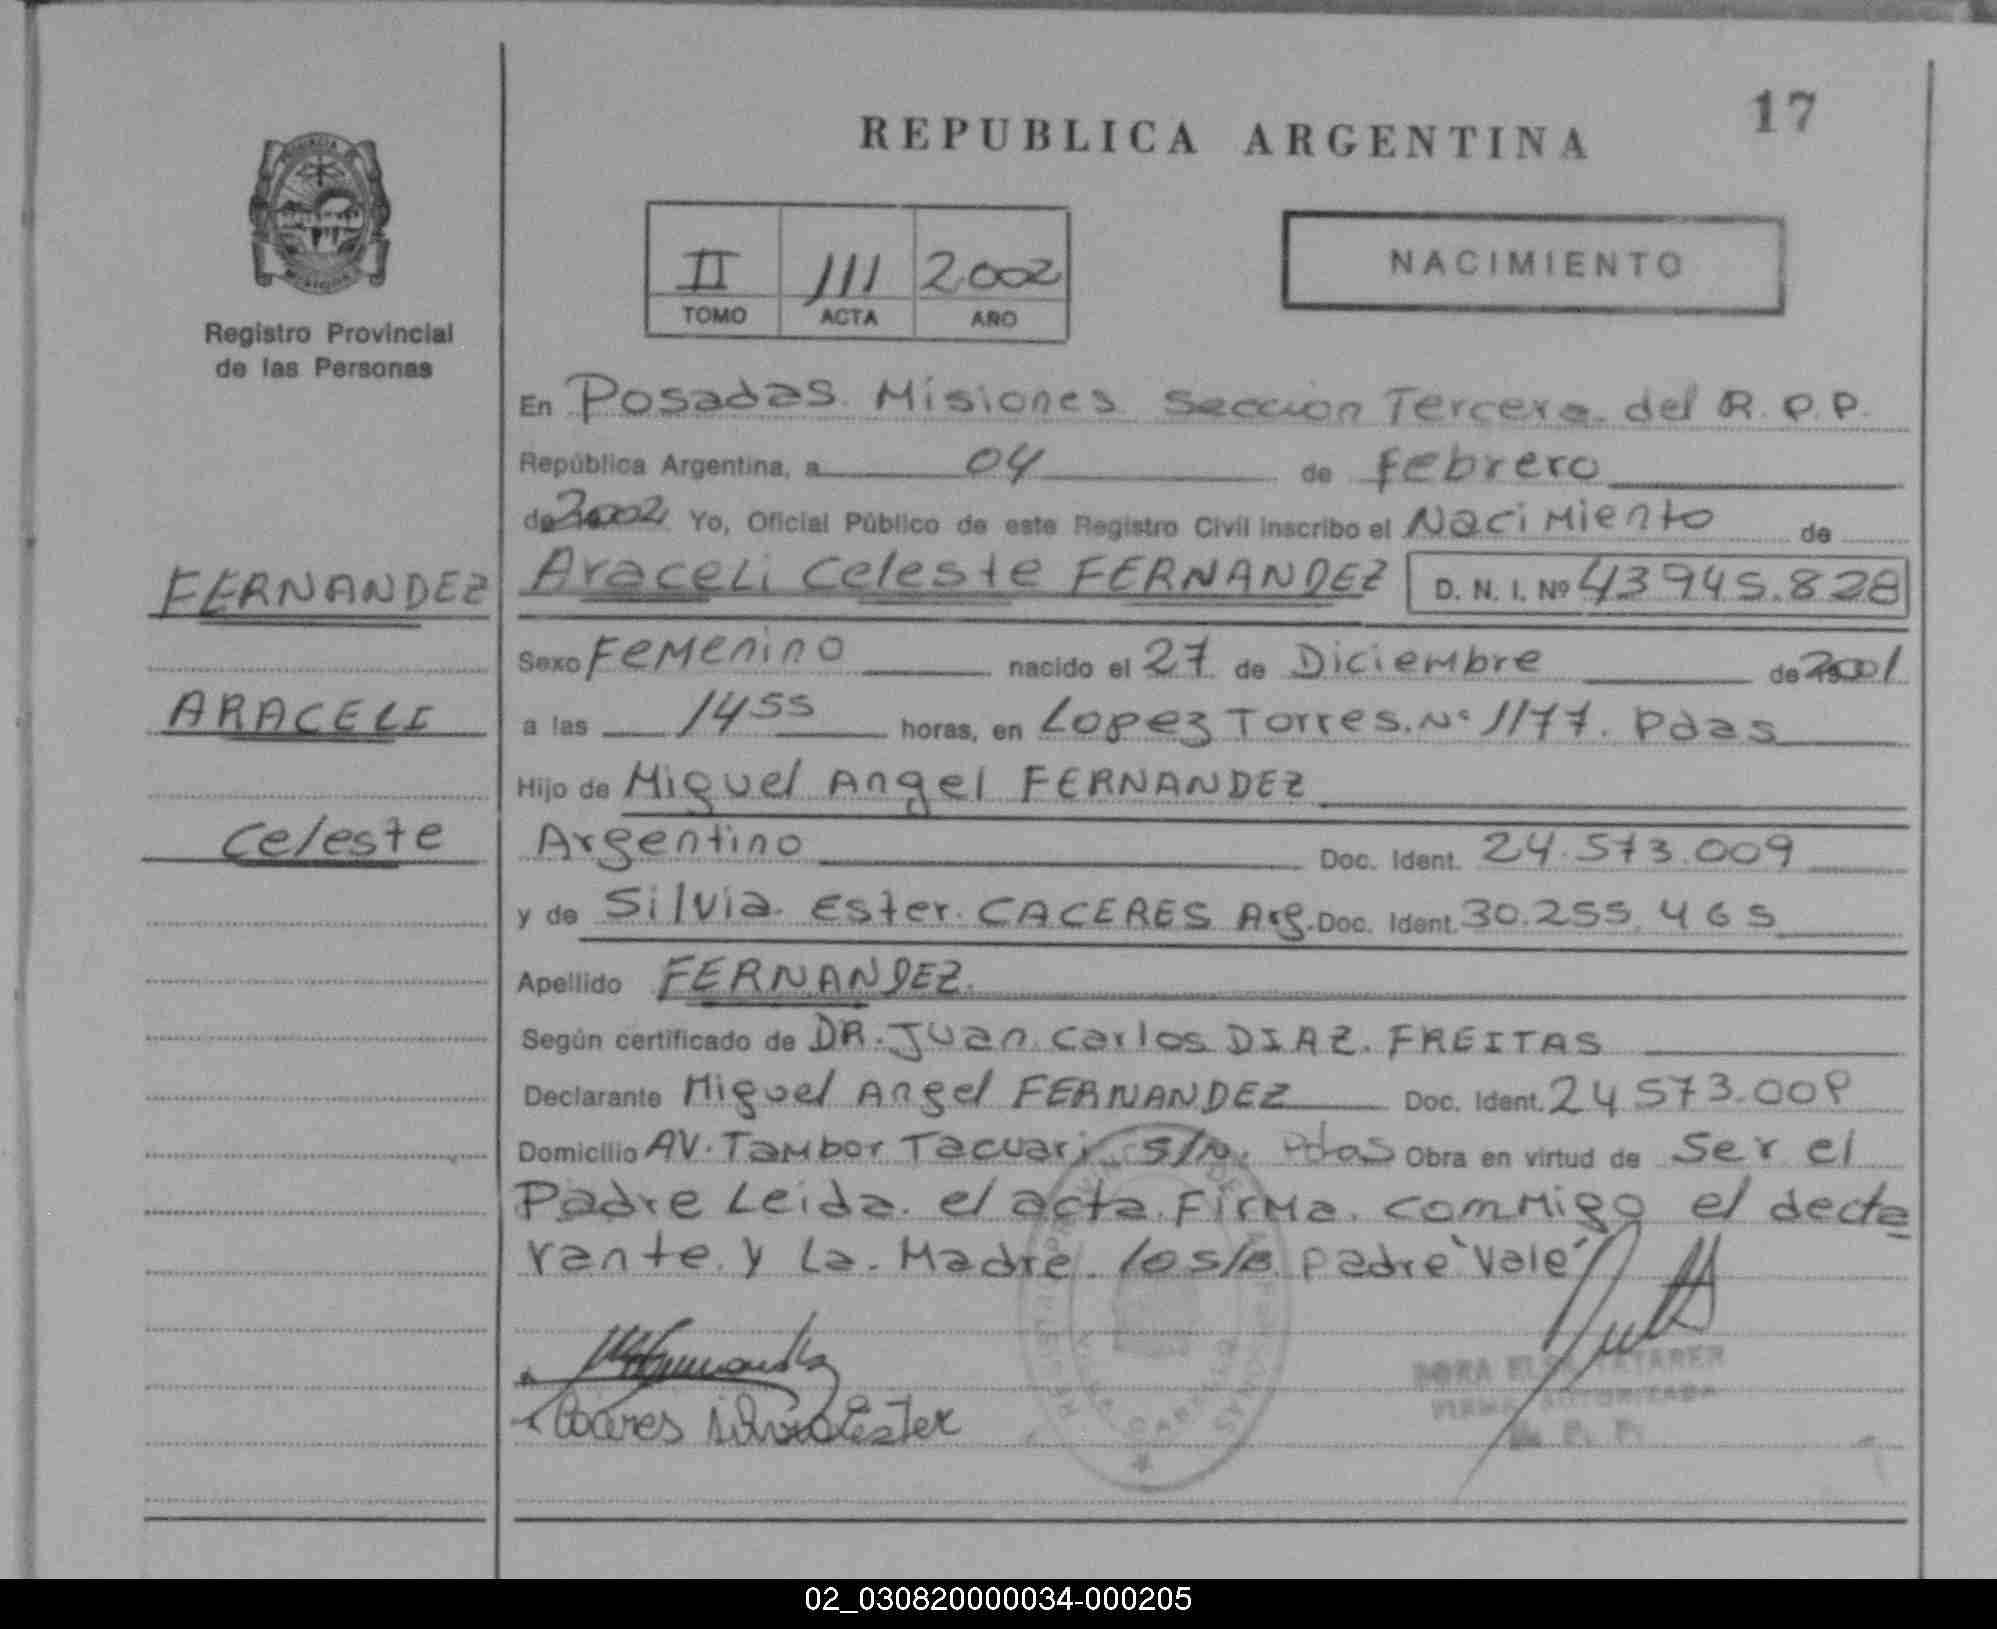 17
REPUBLICA ARGENTINA
II III 2.002
TOMO ACTA AÑO
NACIMIENTO
Registro Provincial
de las Personas
En Posadas Misiones Sección Tercera del R.P.P.
República Argentina, a 04 de Febrero
de 2002 Yo, Oficial Público de este Registro Civil inscribo el Nacimiento de
FERNANDEZ
ARACELI
Celeste
Araceli Celeste FERNANDEZ D. N. I. Nº 43945.828
Sexo Femenino nacido el 27 de Diciembre de 2001
a las 1455 horas, en Lopez Torres. Nº 1177. Pdas
Hijo de Miguel Angel FERNANDEZ
Argentino Doc. Ident. 24.573.009
y de Silvia Ester CACERES Arg. Doc. Ident. 30.255.465
Apellido FERNANDEZ.
Según certificado de DR. Juan Carlos DIAZ. FREITAS
Declarante Miguel Angel FERNANDEZ Doc. Ident. 24573.009
Domicilio AV. Tambor Tacuari S/N. Pdas Obra en virtud de Ser el
Padre Leida el acta Firma conmigo el decla
rante y La Madre. padre "Vale"
Caceres Silvia Ester
VILLA CABELLO
DORA ELSA TATARER
FIRMA AUTORIZADA
R. P. P.
02_030820000034-000205